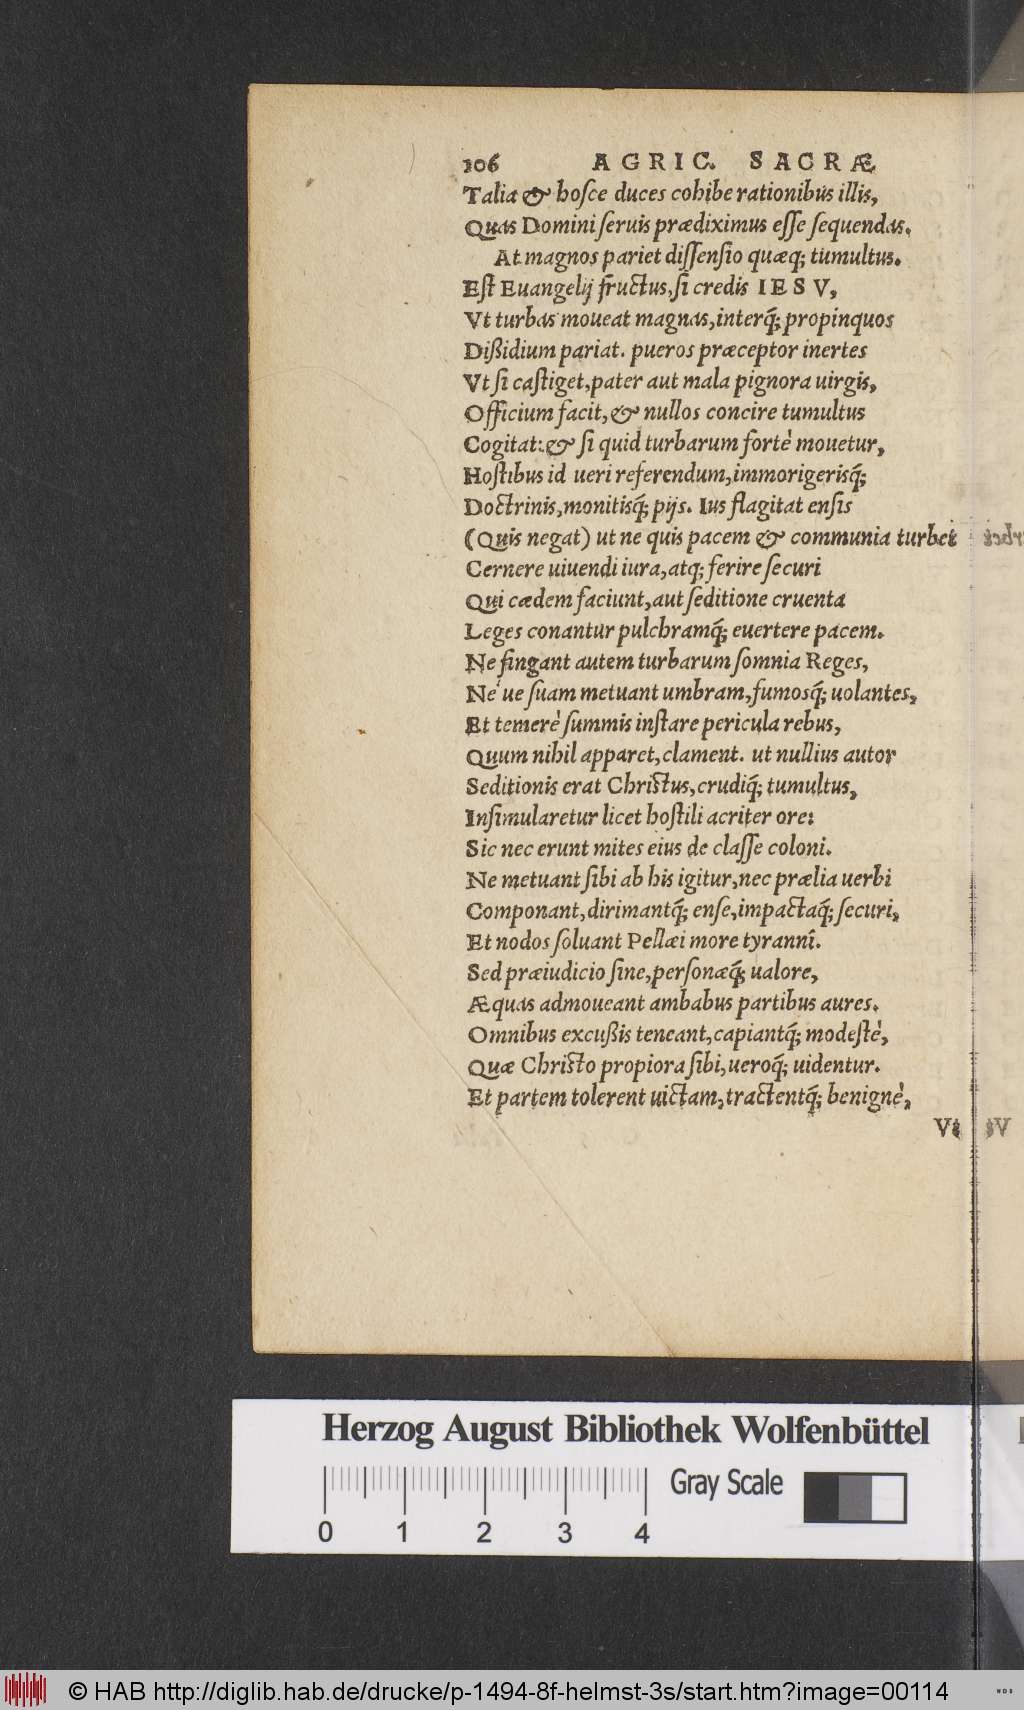 106 AGRIC. SACRÆ
Talia & hoſce duces cohibe rationibus illis,
Quas Domini ſeruis prædiximus eſſe ſequendas.
At magnos pariet diſſenſio quæq; tumultus.
Eſt Euangelij fructus, ſi credis IESV,
Vt turbas moueat magnas, interq́; propinquos
Dißidium pariat. pueros præceptor inertes
Vt ſi caſtiget, pater aut mala pignora uirgis,
Officium facit, & nullos concire tumultus
Cogitat: & ſi quid turbarum fortè mouetur,
Hoſtibus id ueri referendum, immorigerisq́;
Doctrinis, monitisq́; pijs. Ius flagitat enſis
(Quis negat) ut ne quis pacem & communia turbet
Cernere uiuendi iura, atq; ferire ſecuri
Qui cædem faciunt, aut ſeditione cruenta
Leges conantur pulchramq́; euertere pacem.
Ne fingant autem turbarum ſomnia Reges,
Ne ue ſuam metuant umbram, fumosq́; uolantes,
Et temerè ſummis inſtare pericula rebus,
Quum nihil apparet, clament. ut nullius autor
Seditionis erat Chriſtus, crudiq́; tumultus,
Inſimularetur licet hoſtili acriter ore:
Sic nec erunt mites eius de claſſe coloni.
Ne metuant ſibi ab his igitur, nec prælia uerbi
Componant, dirimantq́; enſe, impactaq́; ſecuri,
Et nodos ſoluant Pellæi more tyranni.
Sed præiudicio ſine, perſonæq́; ualore,
Æquas admoueant ambabus partibus aures.
Omnibus excußis teneant, capiantq́; modeſtè,
Quæ Chriſto propiora ſibi, ueroq́; uidentur.
Et partem tolerent uictam, tractentq́; benignè,
Vt
Herzog August Bibliothek Wolfenbüttel
Gray Scale
0 1 2 3 4
© HAB http://diglib.hab.de/drucke/p-1494-8f-helmst-3s/start.htm?image=00114